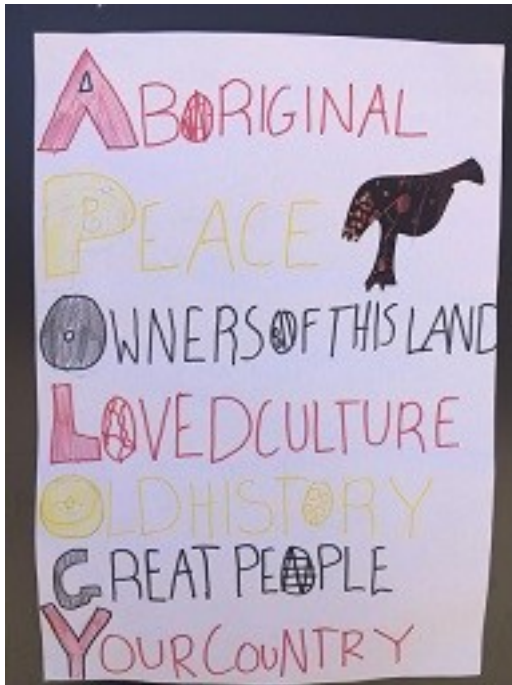 ABORIGINAL
PEACE
OWNERS OF THIS LAND
LOVED CULTURE
OLD HISTORY
GREAT PEOPLE
YOUR COUNTRY